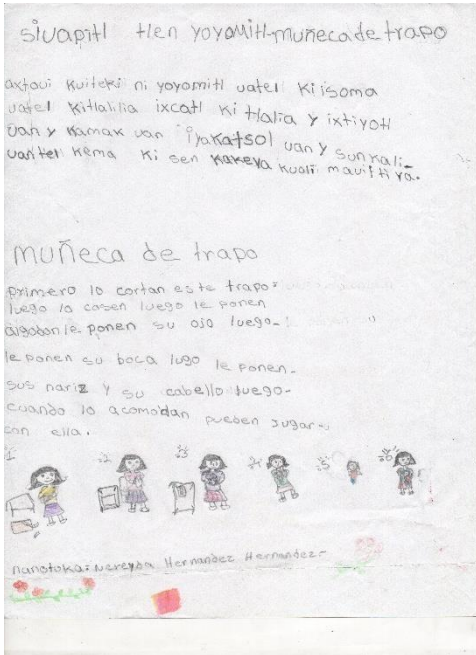 sivapitl tlen yoyomitl-muñeca de trapo
axtovi kuiteki ni yoyomitl uatel kiisoma
uatel kitlalilia ixcatl ki tlalia y ixtiyotl
uan y kamak uan iyakatsol uan y sunkali-
uantel kema ki sen kakeya kuali mauiltiya.
muñeca de trapo
primero lo cortan este trapo
luego lo cosen luego le ponen
algodon le ponen su oso luego-
le ponen su boca lugo le ponen-
sus nariz y su cabello luego-
cuando lo acomodan pueden jugar-
con ella.
1 2 3 4 5 6
nanotoka: Nereyda Hernandez Hernandez-